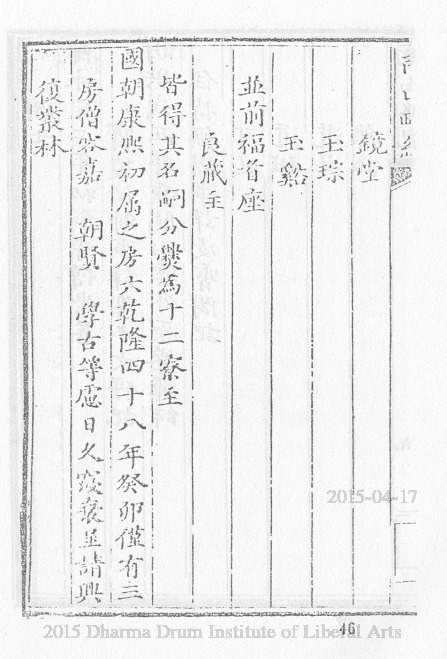 鏡堂
玉琮
玉谿
並前福首座
良藏主
皆得其名嗣分㸑為十二寮至
國朝康熙初屬之房六乾隆四十八年癸卯僅有三
房僧容嘉 朝賢 學古等慮日久寖衰呈請興
復叢林
46
2015-04-17
2015 Dharma Drum Institute of Liberal Arts